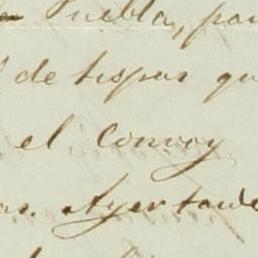 Puebla, par
de hispar qu
el Convoy
as. Ayer tarde